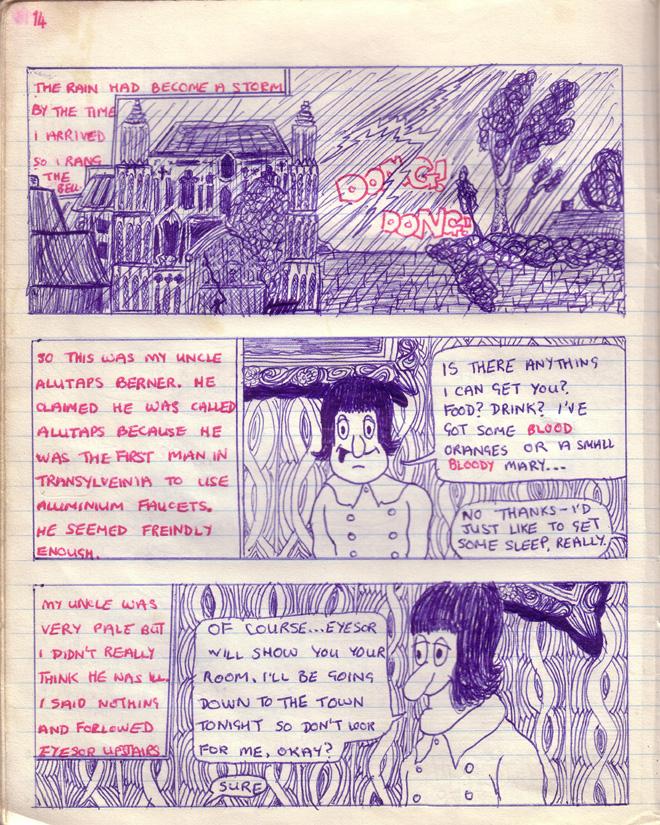 14
THE RAIN HAD BECOME A STORM
BY THE TIME
I ARRIVED
SO I RANG
THE
BELL
DONG!
DONG!
SO THIS WAS MY UNCLE
ALUTAPS BERNER. HE
CLAIMED HE WAS CALLED
ALUTAPS BECAUSE HE
WAS THE FIRST MAN IN
TRANSYLVEINIA TO USE
ALUMINIUM FAUCETS.
HE SEEMED FREINDLY
ENOUGH.
IS THERE ANYTHING
I CAN GET YOU?
FOOD? DRINK? I'VE
GOT SOME BLOOD
ORANGES OR A SMALL
BLOODY MARY...
NO THANKS - I'D
JUST LIKE TO GET
SOME SLEEP, REALLY.
MY UNCLE WAS
VERY PALE BUT
I DIDN'T REALLY
THINK HE WAS ILL.
I SAID NOTHING
AND FORLOWED
EYESOR UPSTAIRS
OF COURSE...EYESOR
WILL SHOW YOU YOUR
ROOM. I'LL BE GOING
DOWN TO THE TOWN
TONIGHT SO DON'T LOOK
FOR ME, OKAY?
SURE